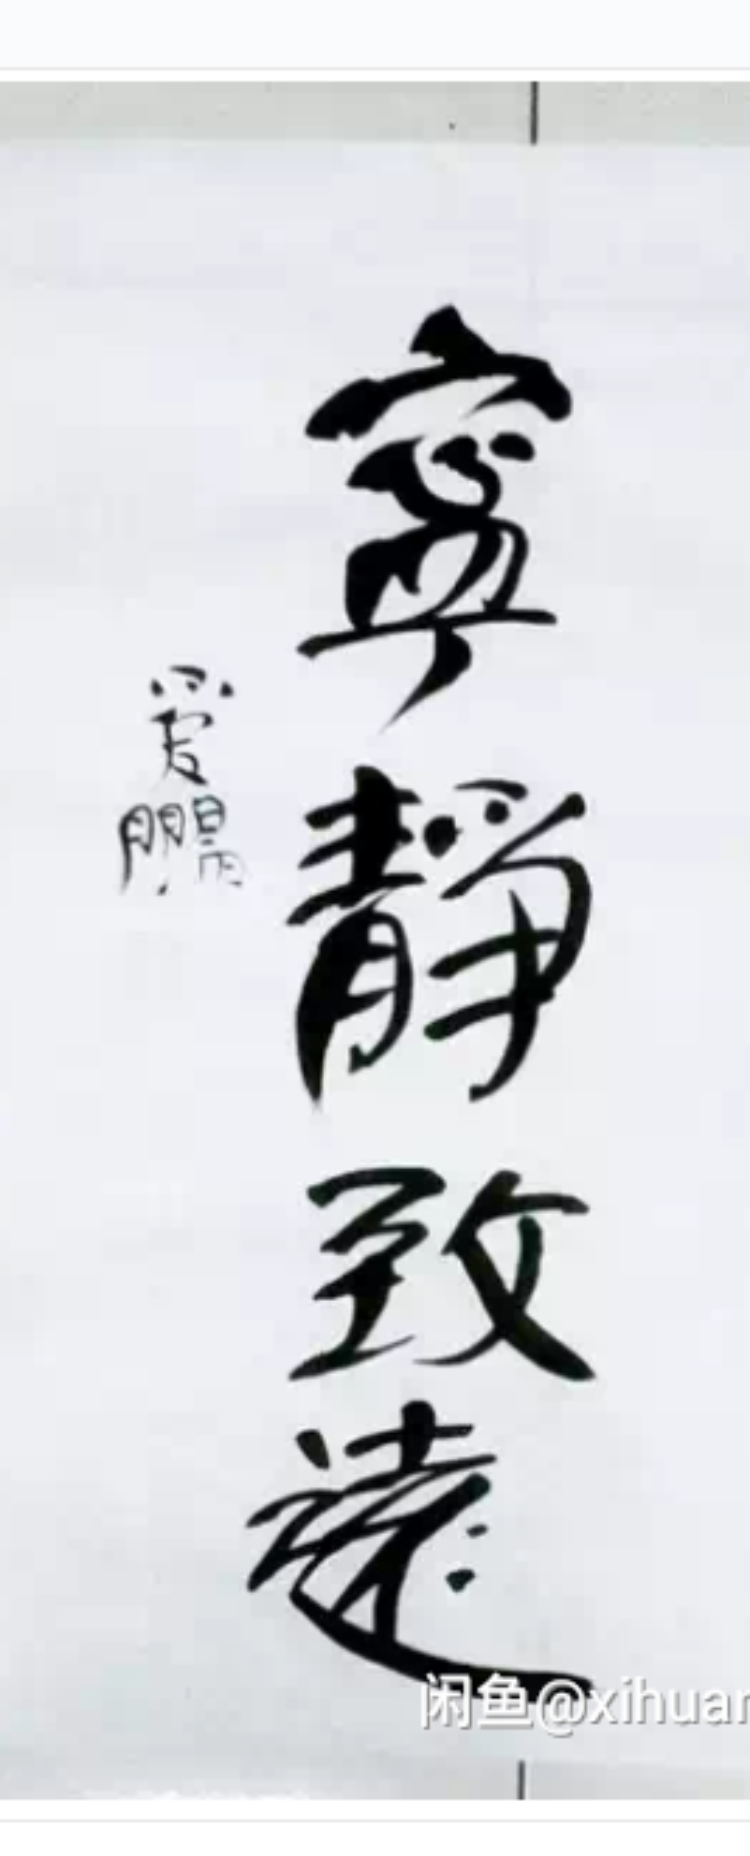 寧靜致遠
爱鵬
闲鱼@xihuan